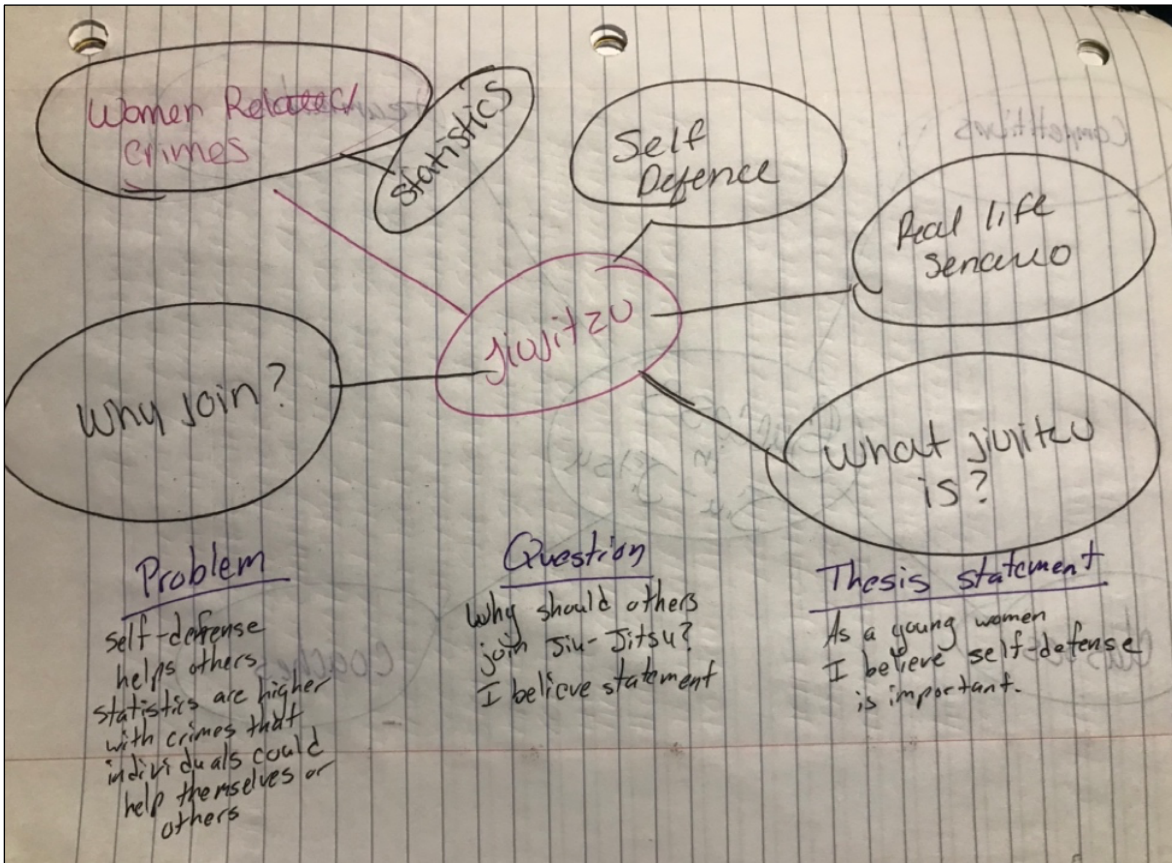 Women Related
crimes
Statistics
Self
Defence
Real life
Senario
Jiujitzu
Why join?
What jiujitzu
is?
Problem
self-defense
helps others
statistics are higher
with crimes that
individuals could
help themselves or
others
Question
Why should others
join Jiu-Jitsu?
I believe statement
Thesis statement
As a young women
I believe self-defense
is important.
Competitions
Coaches
in
Jiu-Jitsu